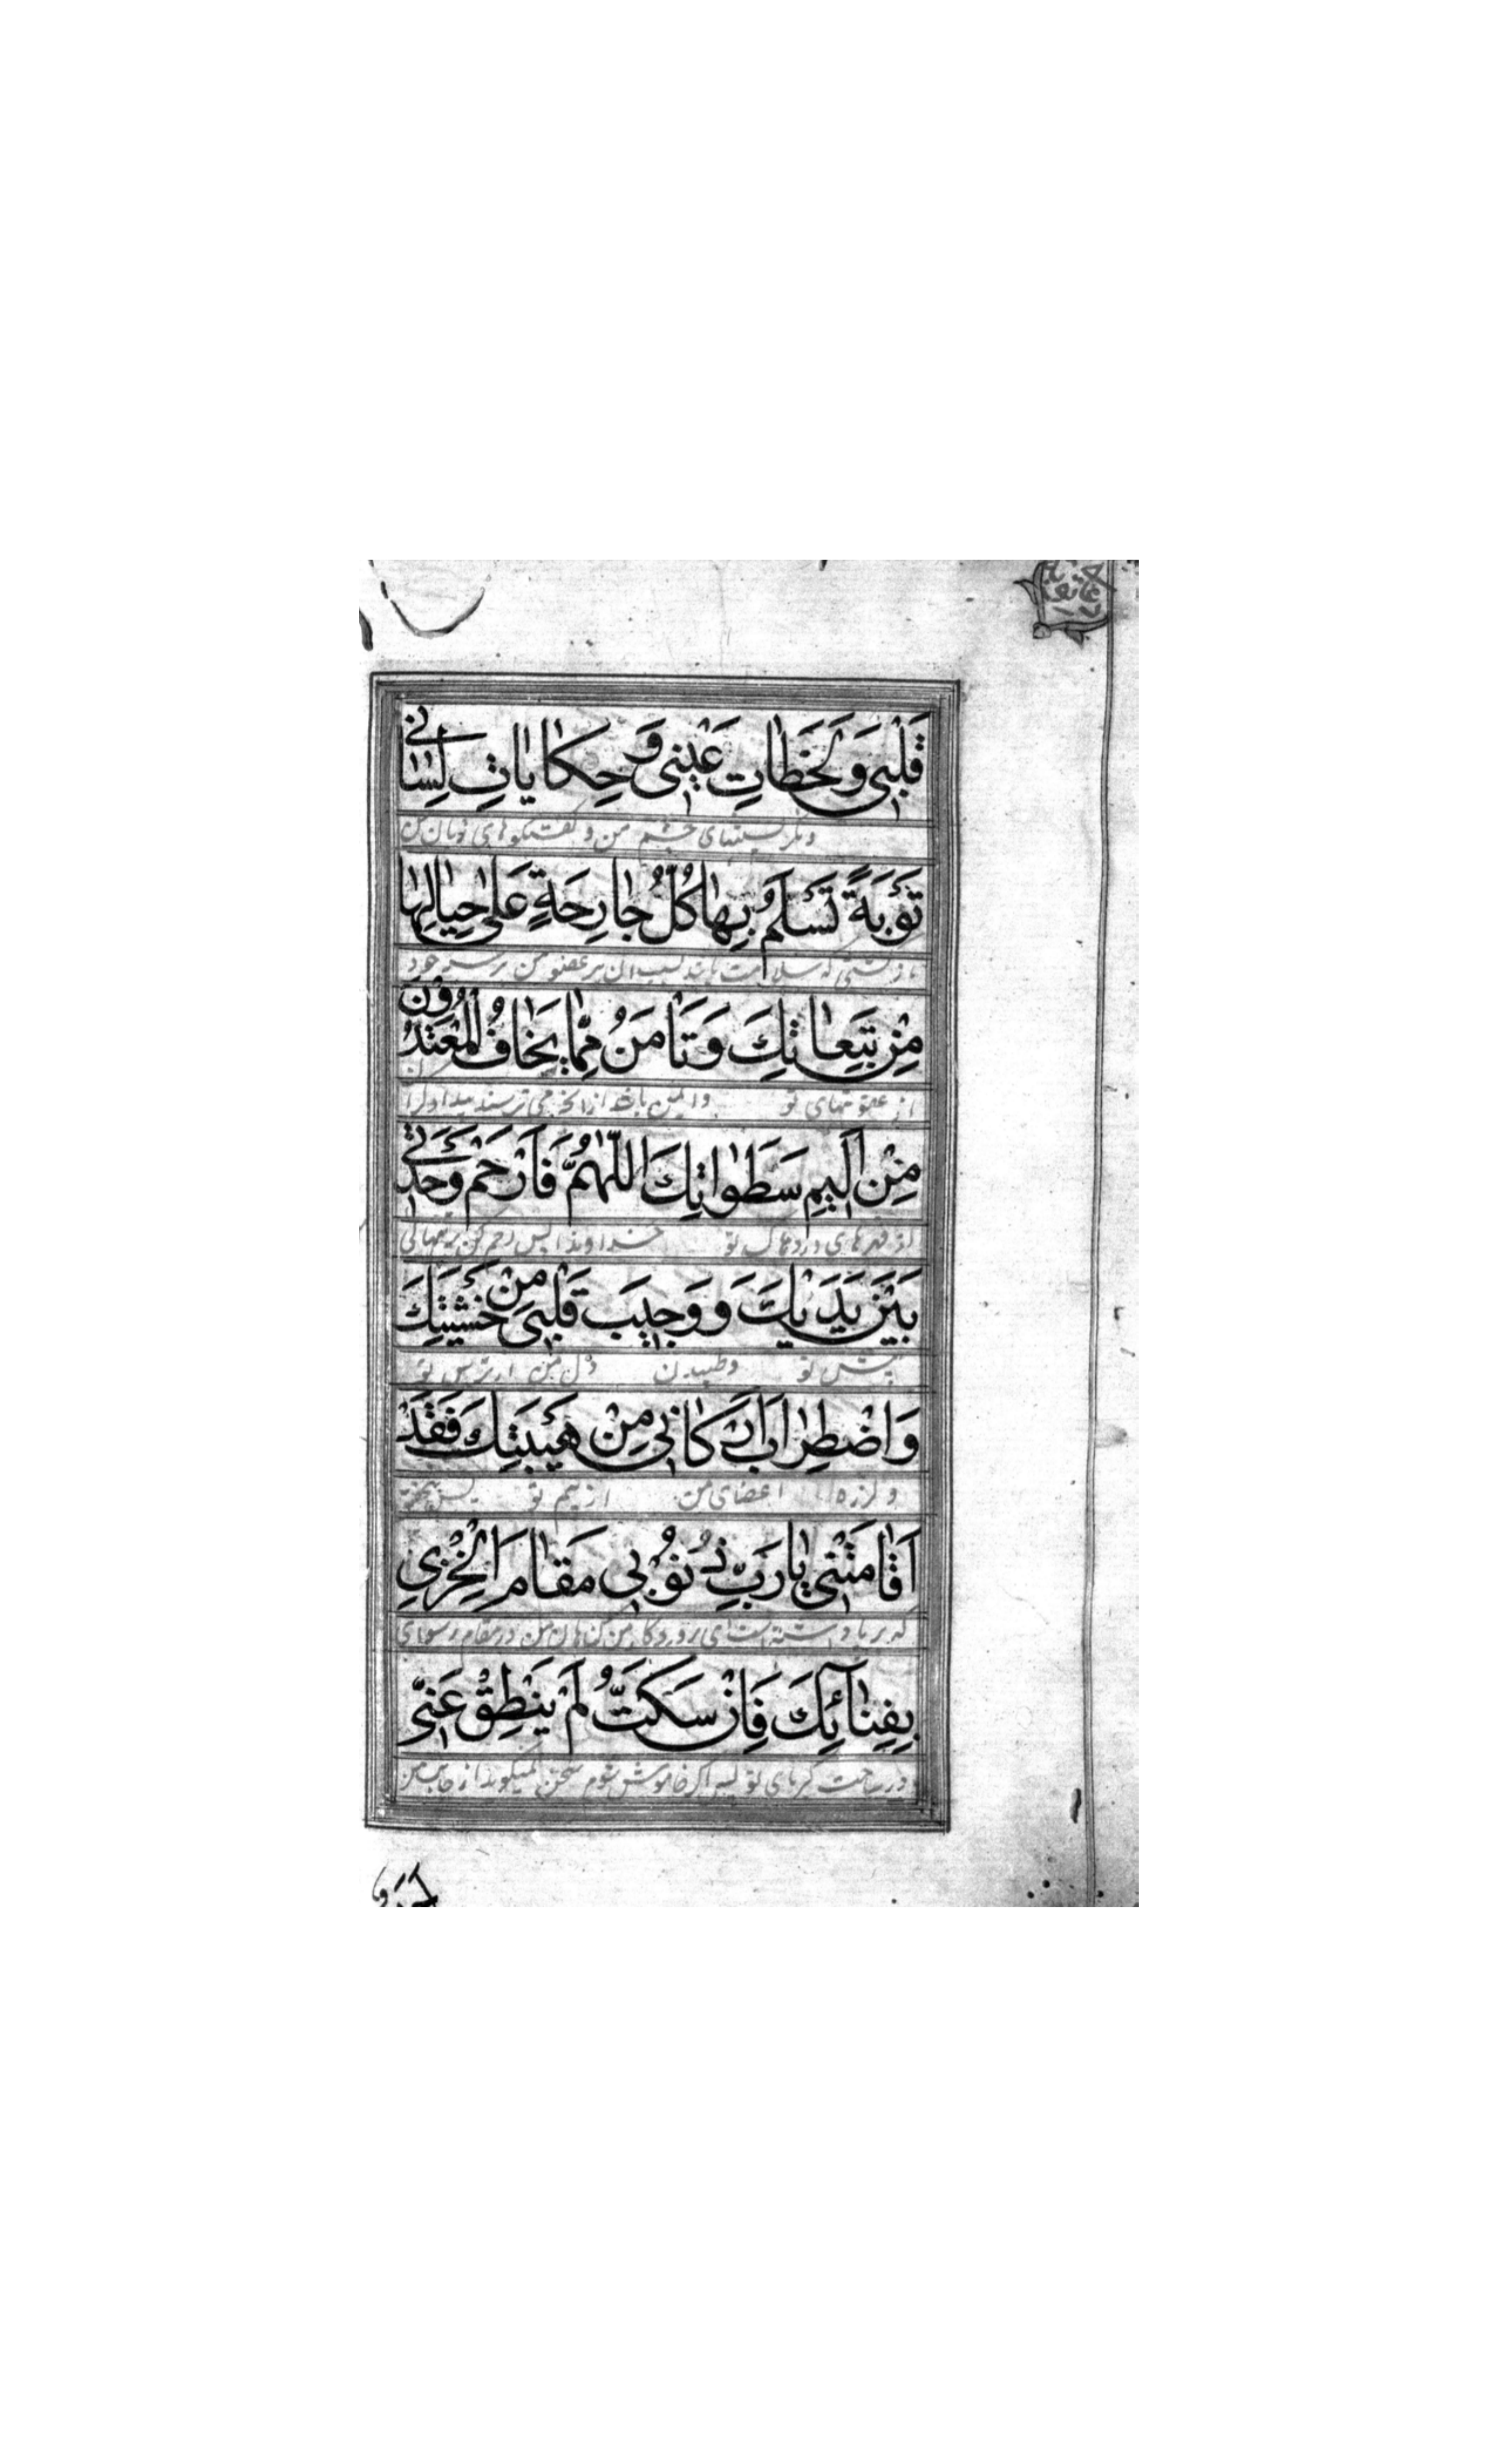 قَلْبِی وَلَحَظَاتِ عَیْنِی وَحِکَایَاتِ لِسَانِی
و نگریستنهای چشم من و گفتگوهای زبان من
تَوْبَةً تَسْلَمُ بِهَا کُلُّ جَارِحَةٍ عَلٰی حِیَالِهَا
بازگشتی که سلامت یابد بسبب آن هر عضو من بر سر خود
مِنْ تَبِعَاتِكَ وَتَاْمَنُ مِمَّا یَخَافُ الْمُعْتَدُوْنَ
از عقوبتهای تو وایمن باشد از آنچه می ترسند بیدادگران
مِنْ اَلِیمِ سَطَوَاتِكَ اَللّٰهُمَّ فَارْحَمْ وَحْدَتِی
از قهرهای دردناک تو خداوندا پس رحم کن بر تنهائی
بَیْنَ یَدَیْكَ وَوَجِیبَ قَلْبِی مِنْ خَشْیَتِكَ
پیش تو وطپیدن دل من از ترس تو
وَاضْطِرَابَ اَرْکَانِی مِنْ هَیْبَتِكَ فَقَدْ
و لرزه اعضای من از بیم تو پس بتحقیق
اَقَامَتْنِی یَارَبِّ ذُنُوْبِی مَقَامَ الْخِزْیِ
که بر پا داشته است ای پروردگار من گناهان من در مقام رسوای
بِفِنَآئِكَ فَاِنْ سَکَتُّ لَمْ یَنْطِقْ عَنِّی
در ساحت کبریای تو پس اگر خاموش شوم سخن نمیگوید از جانب من